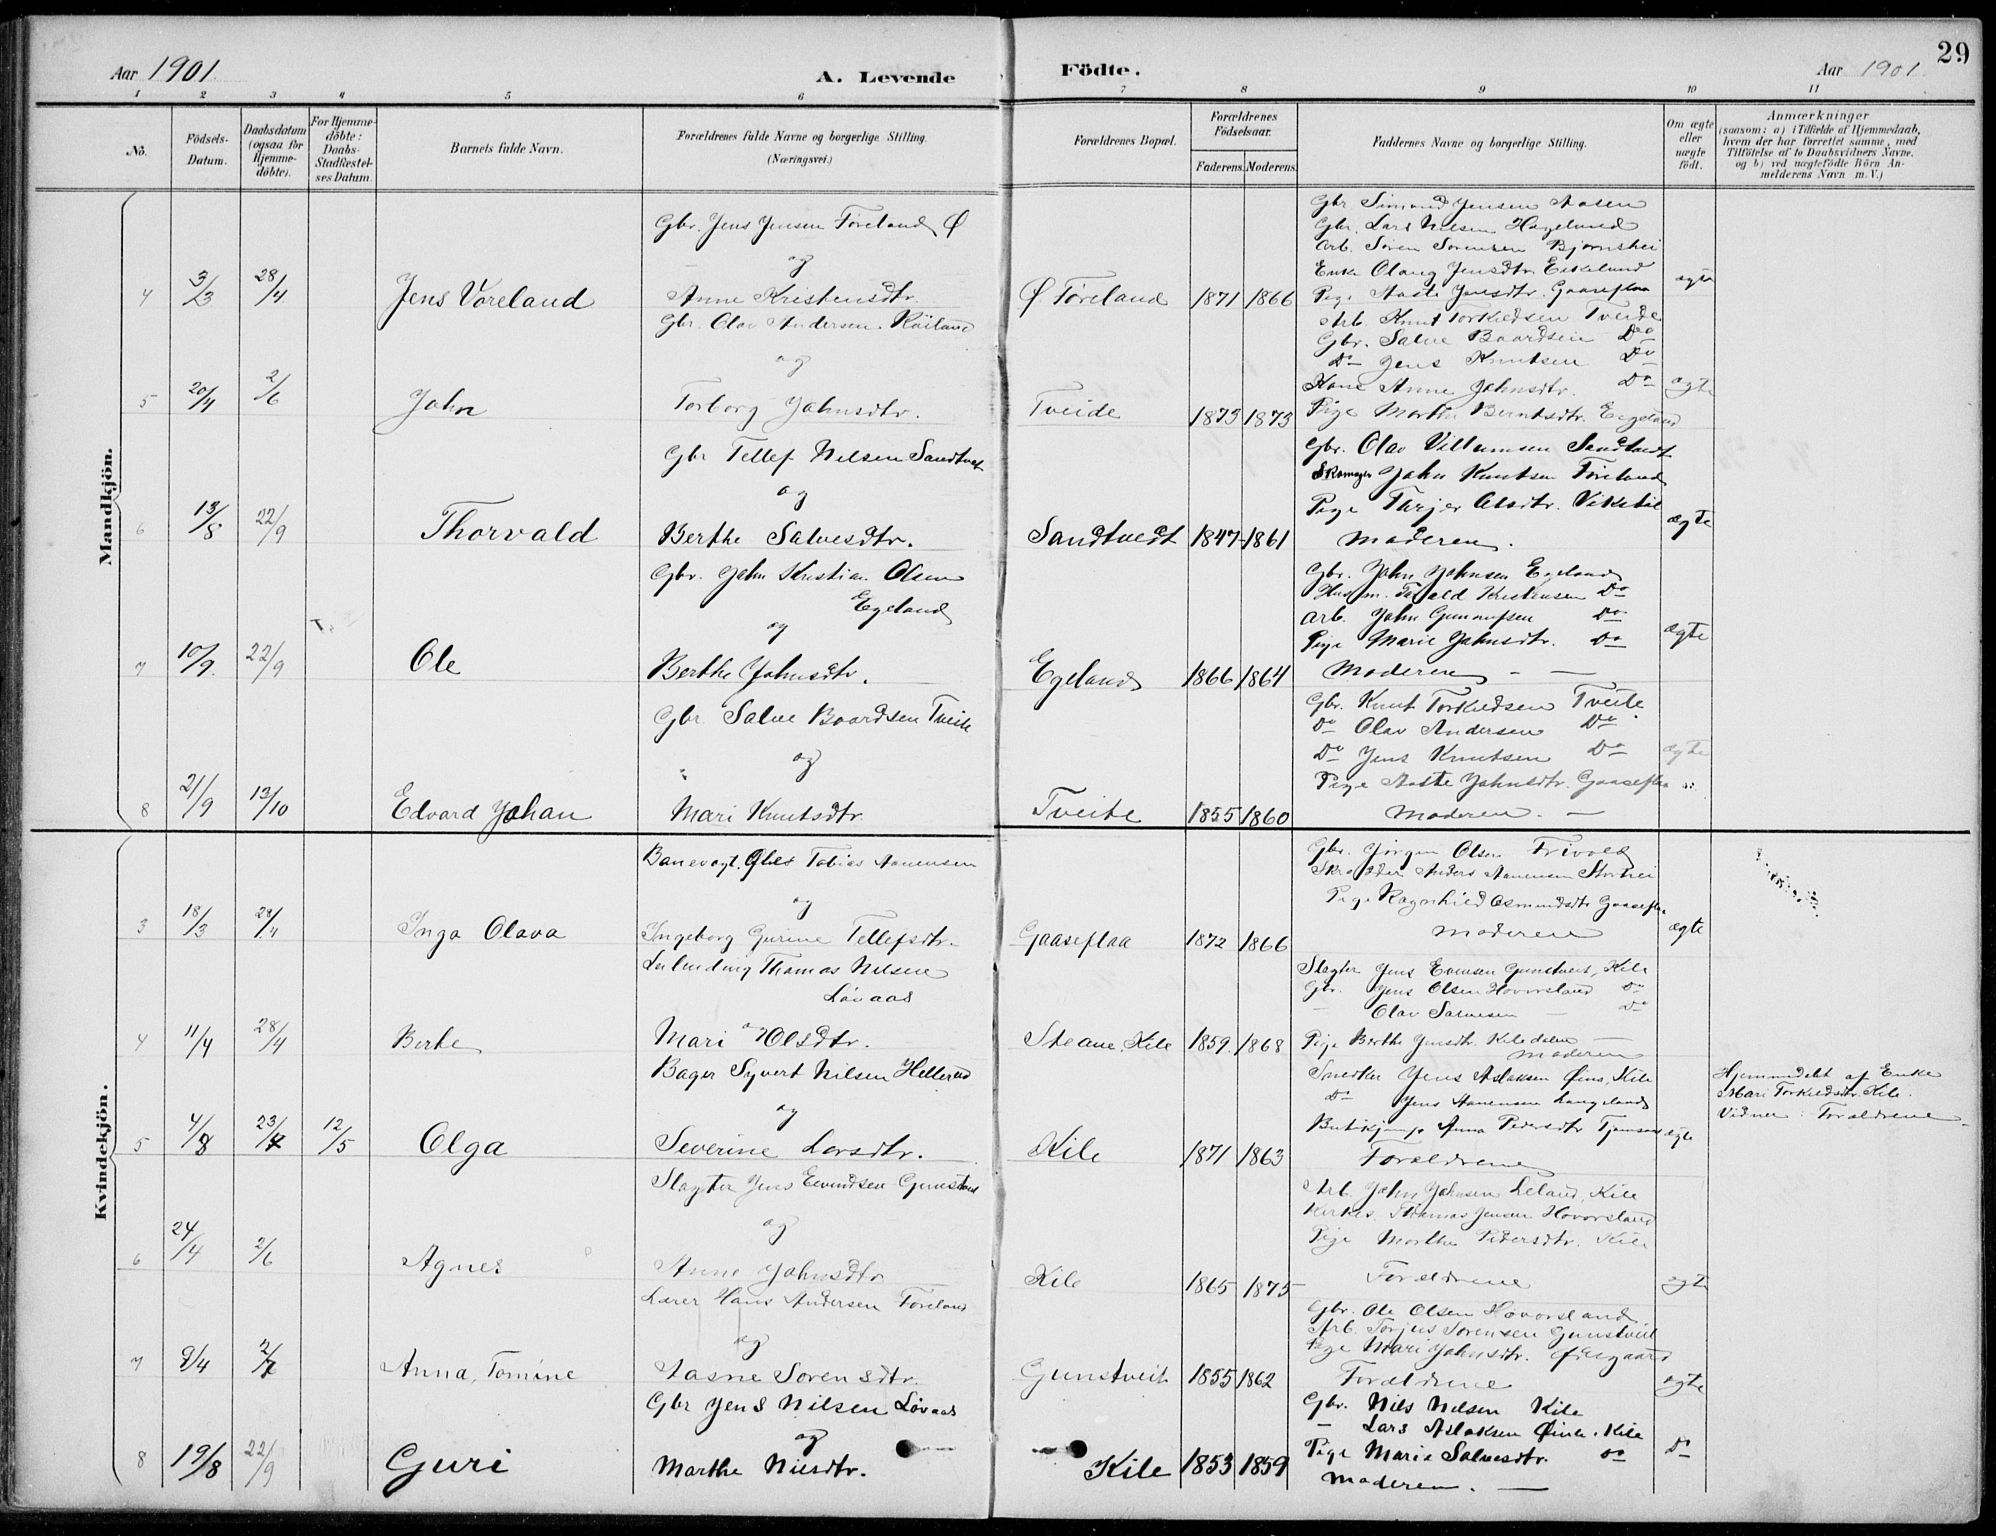 Aar 1901.
A. Levende
Födte.
Aar 1901.
29
1 2 3 4 5 6 7 8 9 10 11
No.
Födsels-
Datum.
Daabsdatum
(ogsaa for
Hjemme-
döbte).
For Hjemme-
döbte:
Daabs-
Stadfæstel-
ses Datum.
Barnets fulde Navn.
Forældrenes fulde Navne og borgerlige Stilling.
(Næringsvei.)
Forældrenes Bopæl.
Forældrenes
Födselsaar.
Faderens. Moderens.
Faddernes Navne og borgerlige Stilling.
Om ægte
eller
uægte
födt.
Anmærkninger
(saasom: a) i Tilfælde af Hjemmedaab,
hvem der har forrettet samme, med
Tilföielse af to Daabsvidners Navne.
og b) ved uægtefödte Börn An-
melderens Navn m. V.)
Mandkjön.
4
3/3
28/4
Jens Voreland
Gbr. Jens Jensen Føreland Ø
og
Anne Kristensdtr.
Ø. Føreland
1871
1866
Gbr Simond Jensen Aasen
Gbr. Lars Nilsen Hageland
Arb. Søren Sørensen Bjørnshei
Enke Olaug Jensdtr. Eikeland
Pige Aaste Jensdtr. Gaaseflaa
ægte
5
20/4
2/6
John
Gbr. Olav Andersen
og
Torborg Johnsdtr.
Tveide
1873
1873
Arb. Knut Torkildsen Tveide
Gbr. Salve Baardsen Do
Do Jens Knutsen Do
Kone Anne Johnsdtr. Do
Pige Marthe Berntsdtr. Egeland
ægte
6
13/8
22/9
Thorvald
Gbr Tellef Nilsen Sandtvet
og
Berthe Salvesdtr.
Sandtvedt
1847
1861
Gbr. Olav Villumsen Sandtvedt
Skomager John Knutsen Føreland
Pige Tarjer Olsdtr. Vikstøl
Moderen.
ægte
7
10/9.
22/9
Ole
Gbr. John Kristian Olsen
Egeland
og
Berthe Johnsdtr.
Egeland
1866
1864
Gbr. John Johnsen Egeland
Husm. Torvald Kristensen Do
Arb. John Gunnufsen Do
Pige Marie Johnsdtr. Do
Moderen
ægte
8
21/9
13/10
Edvard Johan
Gbr Salve Baardsen Tveite
og
Mari Knutsdtr.
Tveite
1855
1860
Gbr. Knut Torkildsen Tveite
Do Olav Andersen Do
Do Jens Knutsen Do
Pige Aaste Johnsdtr. Gaaseflaa
Moderen.
ægte
Kvindekjön.
3
18/3
28/4
Inga Olava
Banevogt. Tobias Aanensen
og
Ingeborg Gurine Tellefsdtr.
Gaaseflaa
1872
1866
Gbr. Jørgen Olsen Frivold
Skrædder Anders Aanensen Storhei
Pige Ragnhild Osmundsdtr Gaaseflaa
Moderen
ægte
4
11/4
28/4
Berte
Leilending Thomas Nilsen
Løvaas
og
Mari Olsdtr.
Steane, Kile
1859.
1868
Slagter Jens Evensen Gunstveit, Kile
Gbr. Jens Olsen Hovorsland Do
Olav Salvesen Do
Pige Berthe Jensdtr. Kiledalen
Moderen
5
4/8
23/7
12/5
Olga
Bager Syvert Nilsen Hellerud
og
Severine Larsdtr.
Kile
1871
1863
Snedker Jens Aslaksen Øine, Kile
Do Jens Aanensen Langeland
Butikjomf. Anna Pedersdtr
Forældrene
ægte
Hjemmedøbt af Enke
Mari Torkildsdtr. Kile.
Vidner: Forældrene
6
24/4
2/6
Agnes
Slagter Jens Eivindsen Gunstveit
og
Anne Johnsdtr
Kile
1865
1875
Arb. John Johnsen Leland, Kile
Kirkes. Thomas Jensen Hovorsland
Pige Marthe Pedersdtr. Kile
Forældrene
ægte
7
9/4
2/7
Anna, Tomine
Lærer Hans Andersen Føreland
og
Aasne Sørensdtr.
Gunstveit
1855
1862
Gbr. Ole Olsen Hovorsland
Arb. Torjus Sørensen Gunstveit
Pige Mari Johnsdtr. Øksgaard
Forældrene
ægte
8
19/8
22/9
Guri
Gbr Jens Nilsen Løvaas
og
Marthe Nilsdtr.
Kile
1853
1859
Gbr. Nils Nilsen Kile
Lars Aslaksen Øine. Kile
Pige Marie Salvesdtr. Do
Moderen.
Do